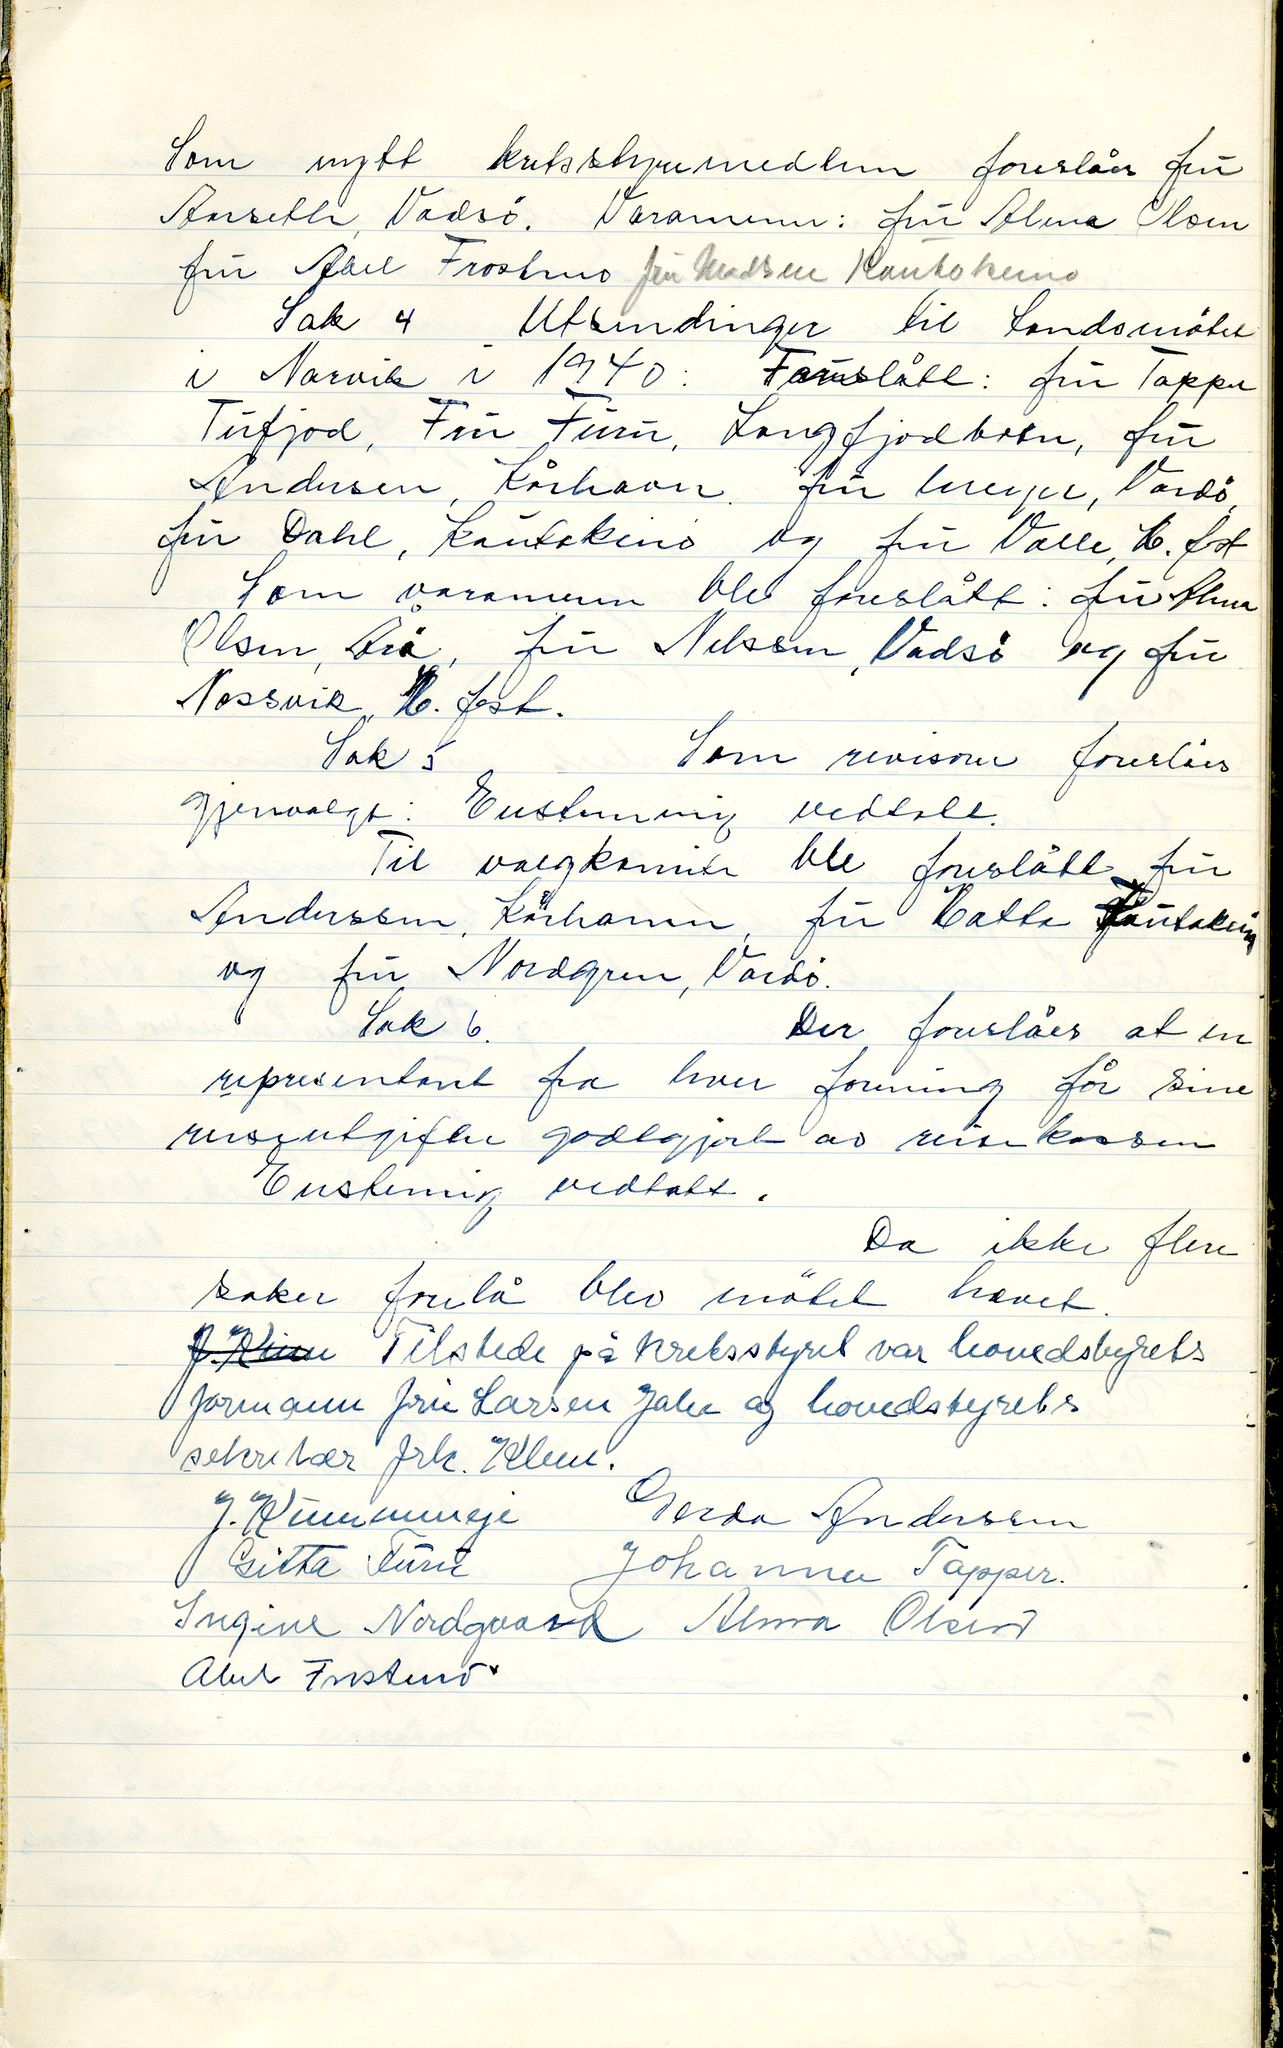 Som nytt kretsstyremedlem foreslåes frú
Anseth, Vadsö. Varamenn: frú Alma Olsen
frú Abel Frostmo frú Madsen Kautokeino
Sak 4 Utsendinger til Landsmötet
i Narvik i 1940: Foreslått: frú Tapper
Túfjod, Frú Fúrú, Langfjodbotn, frú
Andersen, Kårhavn. frú Meyer, Vardö,
frú Dahl, Kaútokeino og frú Valle, H. fest
Som varamenn ble foreslått: frú Alma
Olsen, frú Nilssen, Vadsö og frú
Nessvik, H. fest.
Sak 5 Som revisorer foreslåes
gjenvalgt: Enstemmig vedtatt.
Til valgkomite ble foreslått frú
Anderssen, Kårhamn, frú Hætta Kaútokeino
og frú Nordgren, Vardö.
Sak 6. Der foreslåes at en
representant fra hver forening får sine
reiseutgifter godtgjort av reisekassen
Enstemig vedtatt.
Da ikke flere
saker forelå blev mötet hævet.
Tilstede på kretsstyret var hovedstyrets
formann frú Larsen Jahn og hovedstyrets
sekretær frk. Klem.
J. Kúmmeneje Gerda Anderssen
Gitta Fúrú Johanna Tapper.
Ingine Nordgvard Alma Olsen
Abel Frostmo